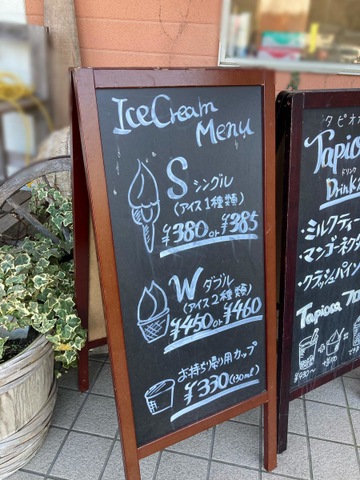 Ice Cream
Menu
S シングル
(アイス1種類)
¥380 or ¥385
W ダブル
(アイス2種類)
¥450 or ¥460
お持ち帰り用カップ
¥330 (130ml)
タピオ
Tapio
ドリンク
Drink
・ミルクティー
・マンゴーネク
・クラッシュパイン
Tapioca フロ